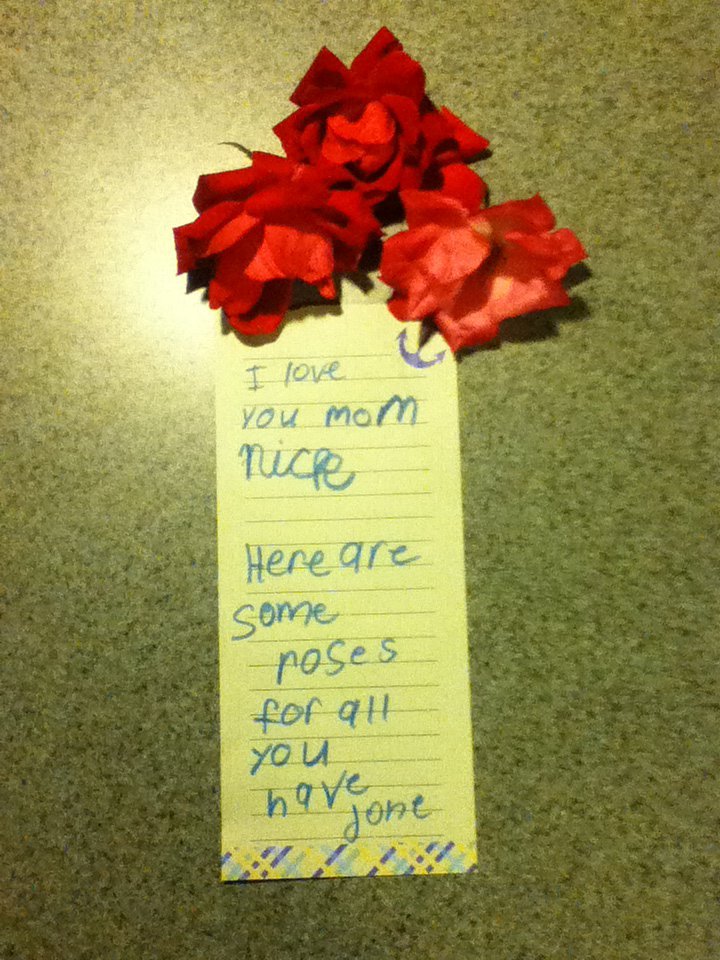 I love
you mom
Here are
some
roses
for all
you
have
done